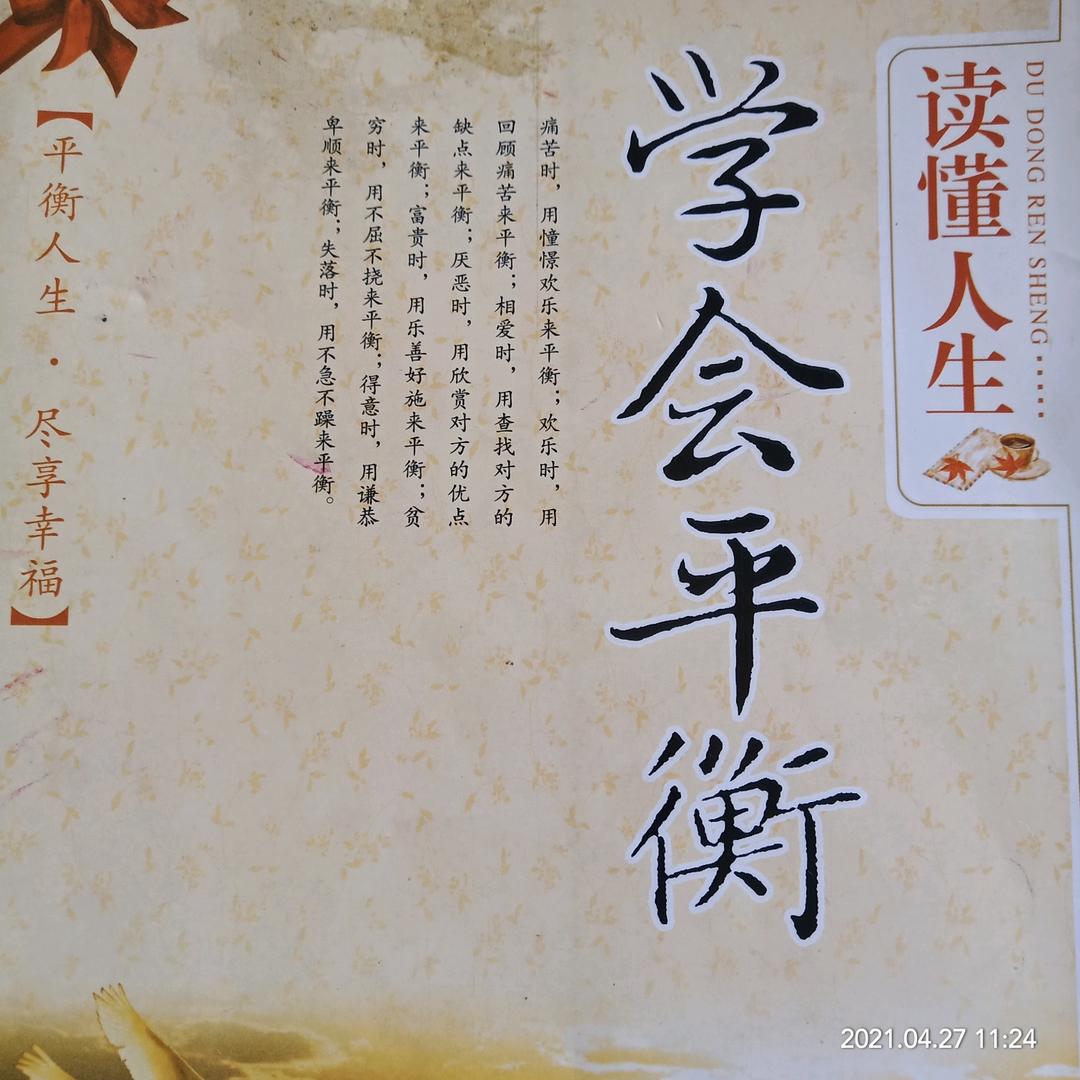 读懂人生
DU DONG REN SHENG
学会平衡
痛苦时，用憧憬欢乐来平衡；欢乐时，用
回顾痛苦来平衡；相爱时，用查找对方的
缺点来平衡；厌恶时，用欣赏对方的优点
来平衡；富贵时，用乐善好施来平衡；贫
穷时，用不屈不挠来平衡；得意时，用谦恭
卑顺来平衡；失落时，用不急不躁来平衡。
【平衡人生·尽享幸福】
2021.04.27 11:24